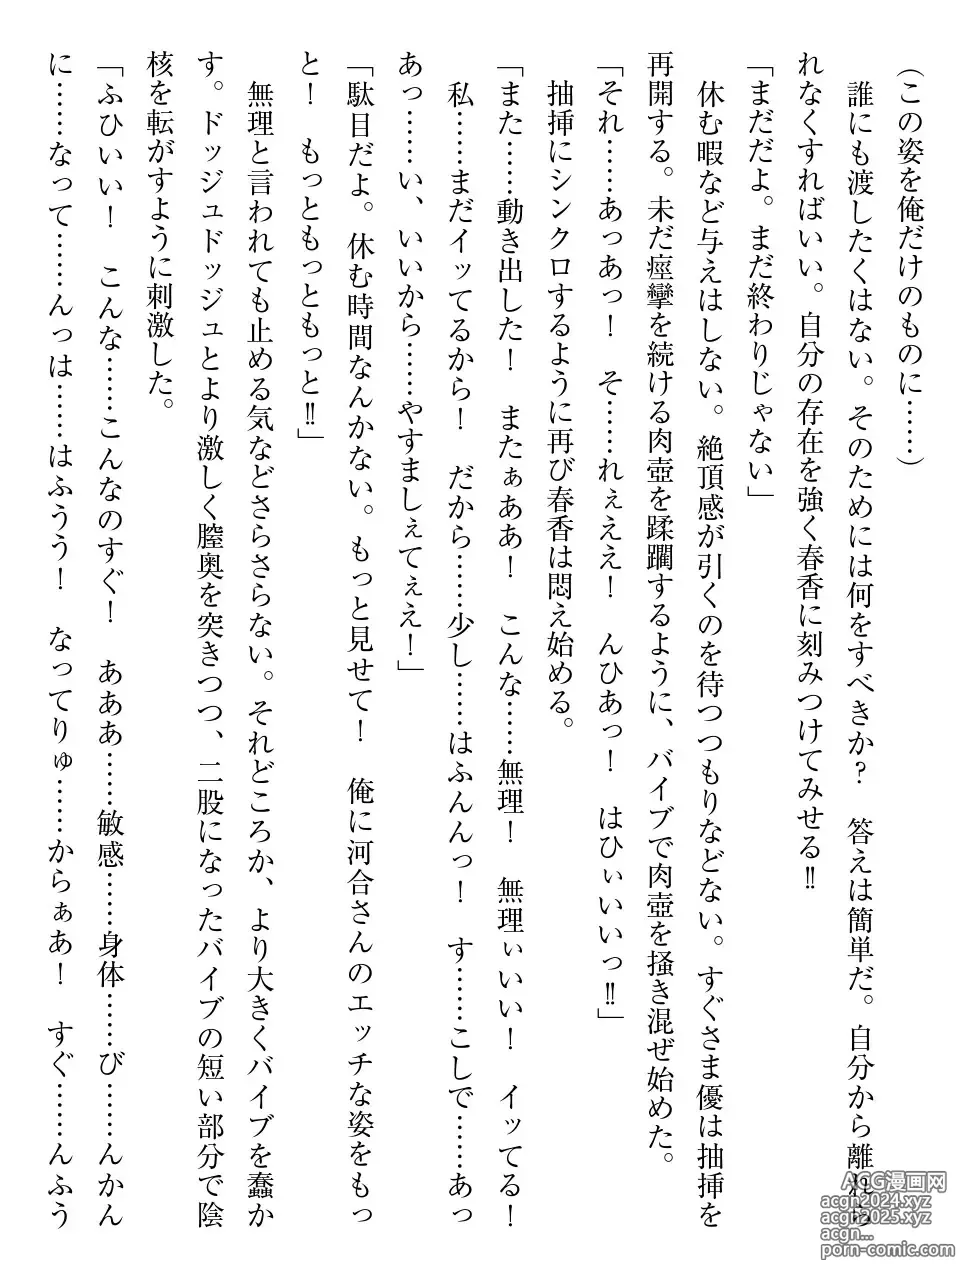 (この姿を俺だけのものに……)
誰にも渡したくはない。そのためには何をすべきか？　答えは簡単だ。自分から離れら
れなくすればいい。自分の存在を強く春香に刻みつけてみせる‼
「まだだよ。まだ終わりじゃない」
休む暇など与えはしない。絶頂感が引くのを待つつもりなどない。すぐさま優は抽挿を
再開する。未だ痙攣を続ける肉壺を蹂躙するように、バイブで肉壺を掻き混ぜ始めた。
「それ……あっあっ！　そ……れぇええ！　んひあっ！　はひぃいいっ‼」
抽挿にシンクロするように再び春香は悶え始める。
「また……動き出した！　またぁああ！　こんな……無理！　無理ぃいい！　イッてる！
私……まだイッてるから！　だから……少し……はふんんっ！　す……こしで……あっ
あっ……い、いいから……やすましぇてぇえ！」
「駄目だよ。休む時間なんかない。もっと見せて！　俺に河合さんのエッチな姿をもっ
と！　もっともっともっと‼」
無理と言われても止める気などさらさらない。それどころか、より大きくバイブを蠢か
す。ドッジュドッジュとより激しく膣奥を突きつつ、二股になったバイブの短い部分で陰
核を転がすように刺激した。
「ふひい！　こんな……こんなのすぐ！　あああ……敏感……身体……び……んかん
に……なって……んっは……はふう！　なってりゅ……からぁあ！　すぐ……んふう
ACG漫画网
acgn2024.xyz
acgn2025.xyz
acgn...
porn-comic.com